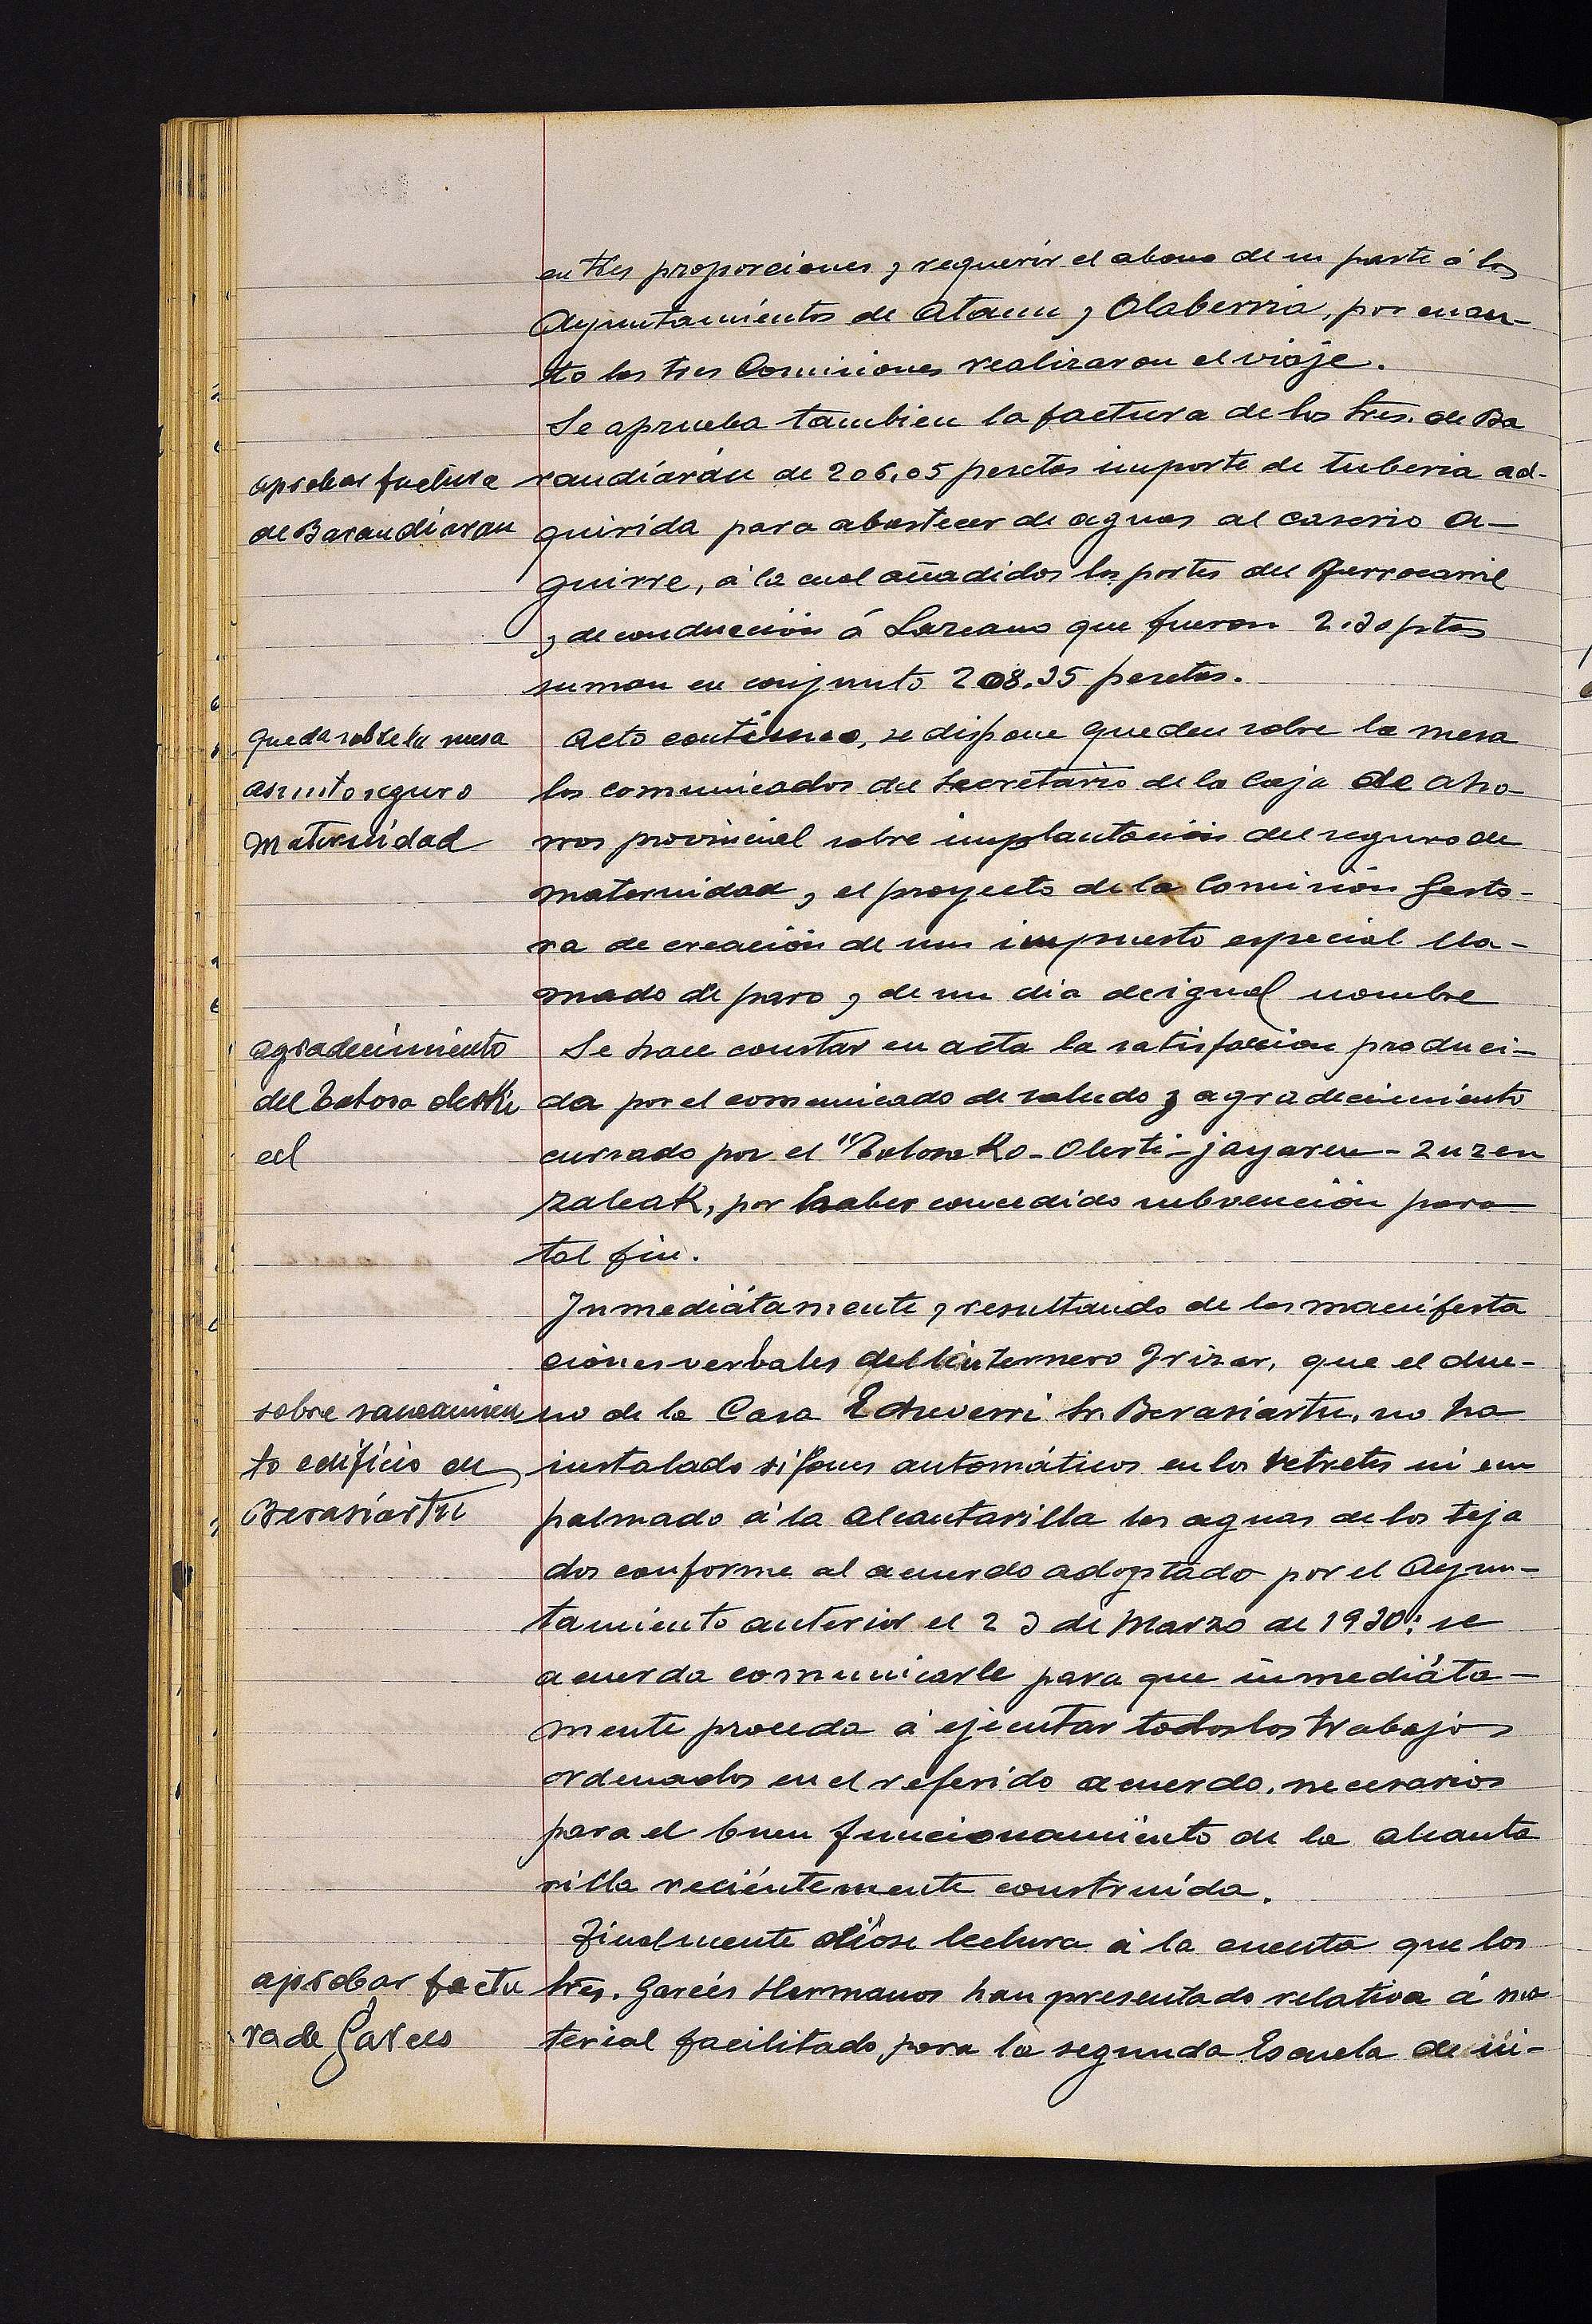 en tres proporciones y requerir el abono de su parte á los
Ayuntamientos de Ataun y Olaberria, por cuan-
to las tres Comisiones realizaron el viaje.
Se aprueba tambien la factura de los Sres. de Ba
aprobar factura
de Barandiaran
randiarán de 206,05 pesetas importe de tuberia ad-
quirida para abastecer de aguas al caserio A-
guirre, á la cual añadidos los portes del Ferrocarril
y de conducción á Lazcano que fueron 2.30 ptas
suman en conjunto 208.35 pesetas.
queda sobre la mesa
asunto seguro
Maternidad
Acto contínuo, se dispone queden sobre la mesa
los comunicados del Secretario de la Caja de Aho-
rros provincial sobre implantación del seguro de
maternidad y el proyecto de la Comisión Gesto-
ra de creación de un impuesto especial lla-
mado de paro y de un dia de igual nombre
agradecimiento
del Tolosa olestki
ed
Se hace constar en acta la satisfaccion produci-
da por el comunicado de saludo y agradecimiento
cursado por el "Tolosako-Olerti-jayaren-zuzen
zaleak, por haber concedido subvención para
tal fin.
Inmediátamente y resultando de las manifesta
ciones verbales del linternero Irizar, que el due-
sobre saneamien
to edificio de
Berasiartu
no de la Casa Echeverri Sr. Berasiartu, no ha
instalado sifones automáticos en los retretes ni em
palmado á la alcantarilla las aguas de los teja
dos conforme al acuerdo adoptado por el Ayun-
tamiento anterior el 23 de Marzo de 1930; se
acuerda comunicarle para que inmediáta-
mente proceda á ejecutar todos los trabajos
ordenados en el referido acuerdo, necesarios
para el buen funcionamiento de la alcanta
rilla reciéntemente construída.
Finalmente dióse lectura á la cuenta que los
aprobar factu
ra de Garces
Sres. Garcés Hermanos han presentado relativa á ma
terial facilitado para la segunda Escuela de ni-